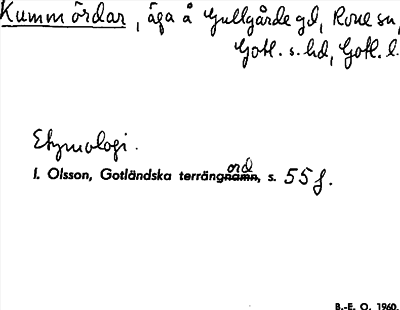 Kummördar, äga å Gullgårde gd, Rone sn,
Gotl. s. hd, Gotl. l.
Etymologi.
I. Olsson, Gotländska terrängord, s. 55 f.
B.-E. O. 1960.